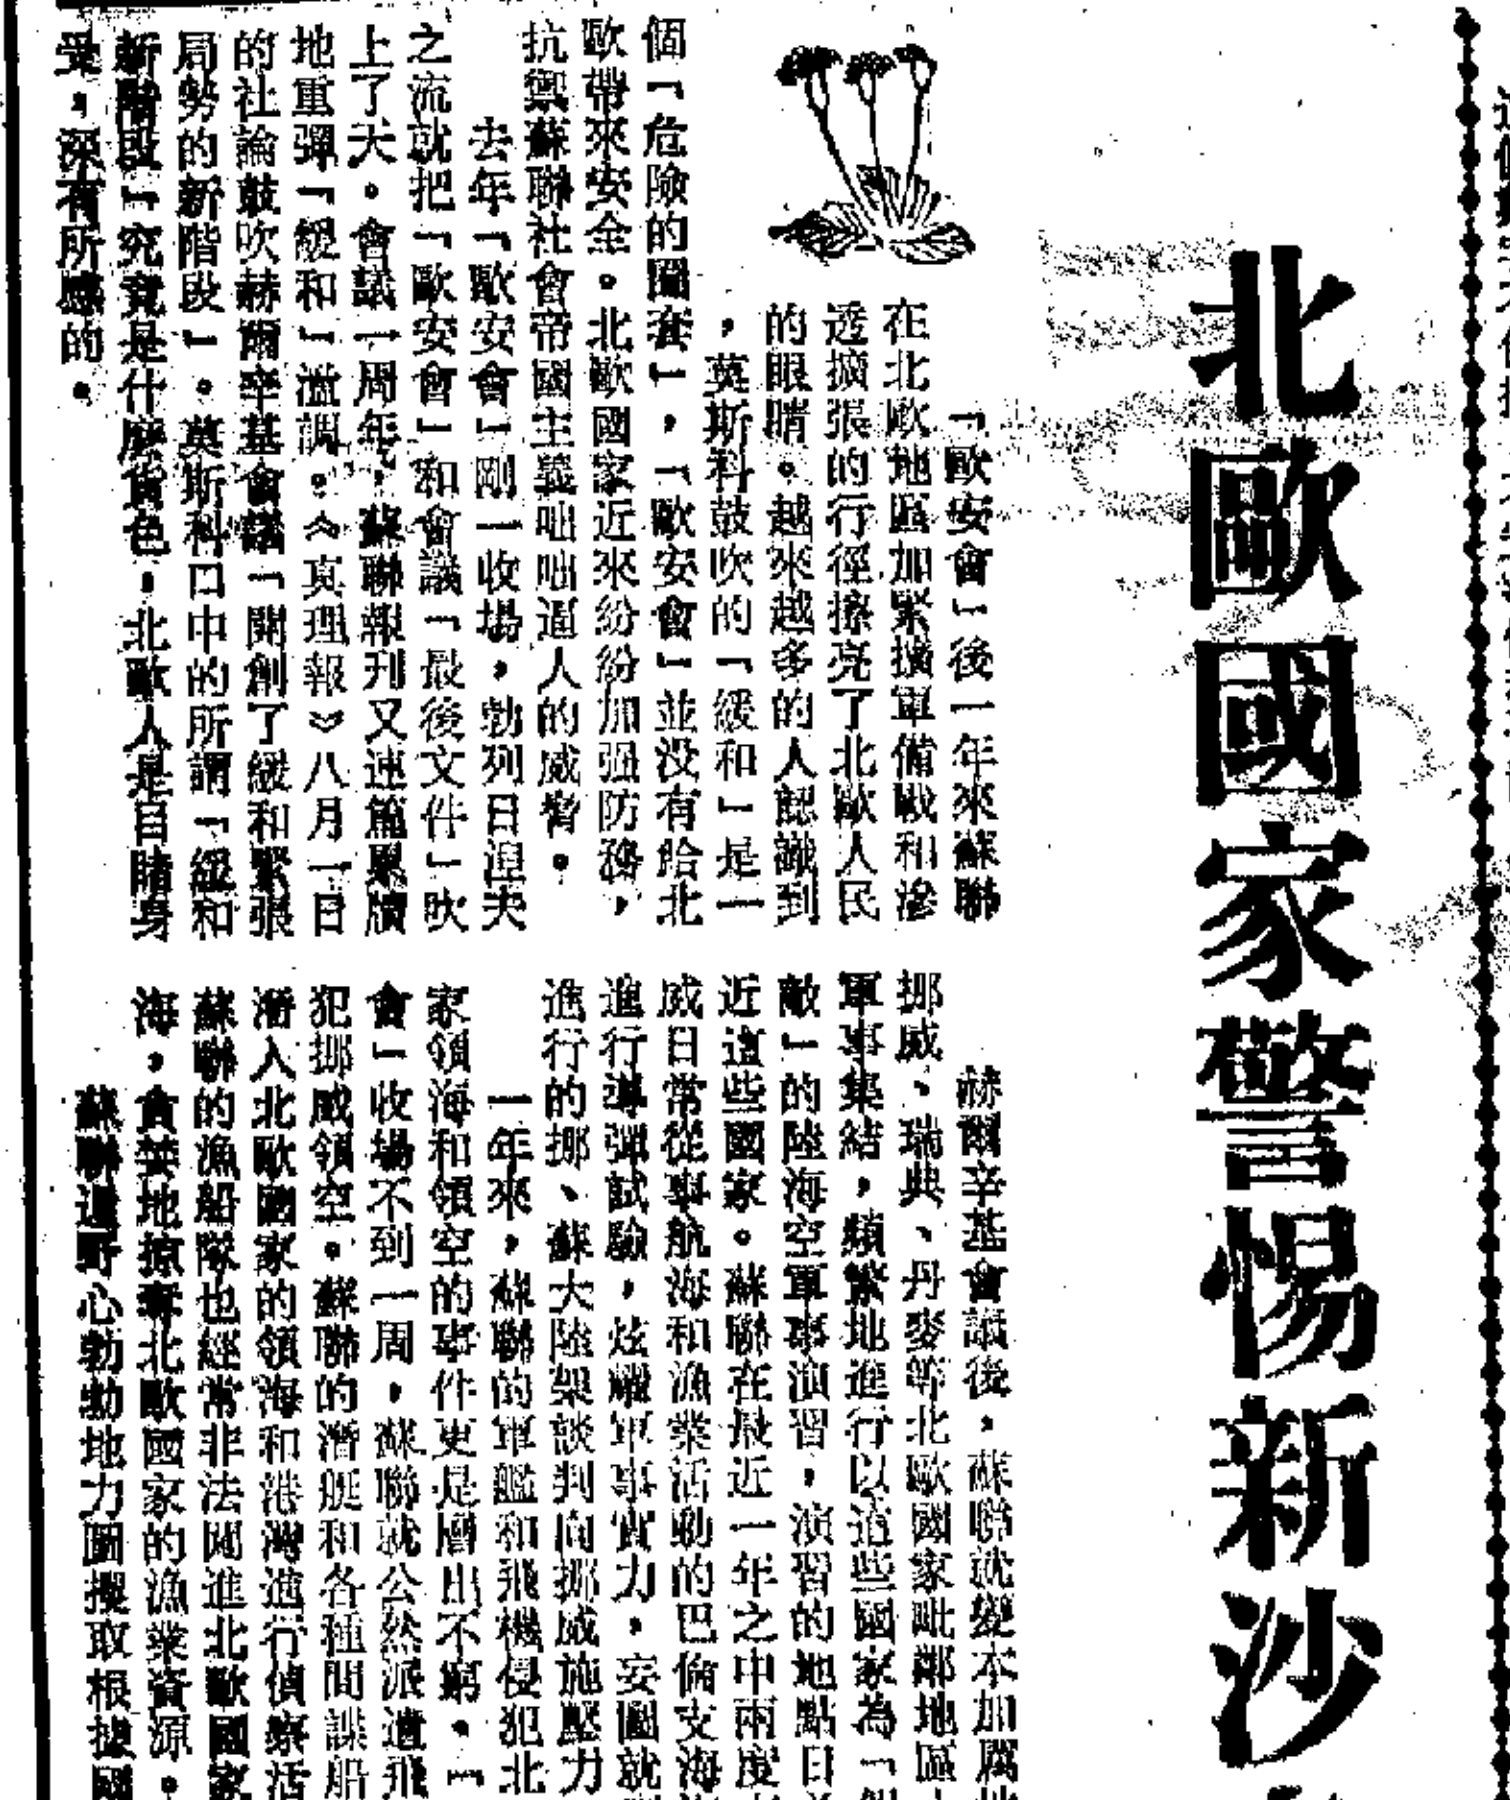 北歐國家警惕新沙
「歐安會」後一年來蘇聯
在北歐地區加緊擴軍備戰和滲
透擴張的行徑擦亮了北歐人民
的眼睛。越來越多的人認識到
，莫斯科鼓吹的「緩和」是一
個「危險的圈套」，「歐安會」並没有給北
歐帶來安全。北歐國家近來紛紛加强防務，
抗禦蘇聯社會帝國主義咄咄逼人的威脅。
去年「歐安會」剛一收場，勃列日湼夫
之流就把「歐安會」和會議「最後文件」吹
上了天。會議一周年，蘇聯報刊又連篇累牘
地重彈「緩和」濫調。《真理報》八月一日
的社論鼓吹赫爾辛基會議「開創了緩和緊張
局勢的新階段」。莫斯科口中的所謂「緩和
新階段」究竟是什麽貨色，北歐人是目睹身
受，深有所感的。
赫爾辛基會議後，蘇聯就變本加厲地
挪威、瑞典、丹麥等北歐國家毗鄰地區
軍事集結，頻繁地進行以這些國家為「假
敵」的陸海空軍事演習，演習的地點日
近這些國家。蘇聯在最近一年之中兩度
威日常從事航海和漁業活動的巴倫支海
進行導彈試驗，炫耀軍事實力，妄圖就
進行的挪、蘇大陸架談判向挪威施壓力
一年來，蘇聯的軍艦和飛機侵犯北
家領海和領空的事件更是層出不窮。「
會」收場不到一周，蘇聯就公然派遣飛
犯挪威領空。蘇聯的潛艇和各種間諜船
潛入北歐國家的領海和港灣進行偵察活
蘇聯的漁船隊也經常非法闖進北歐國家
海，貪婪地掠奪北歐國家的漁業資源。
蘇聯還野心勃勃地力圖攫取根據國